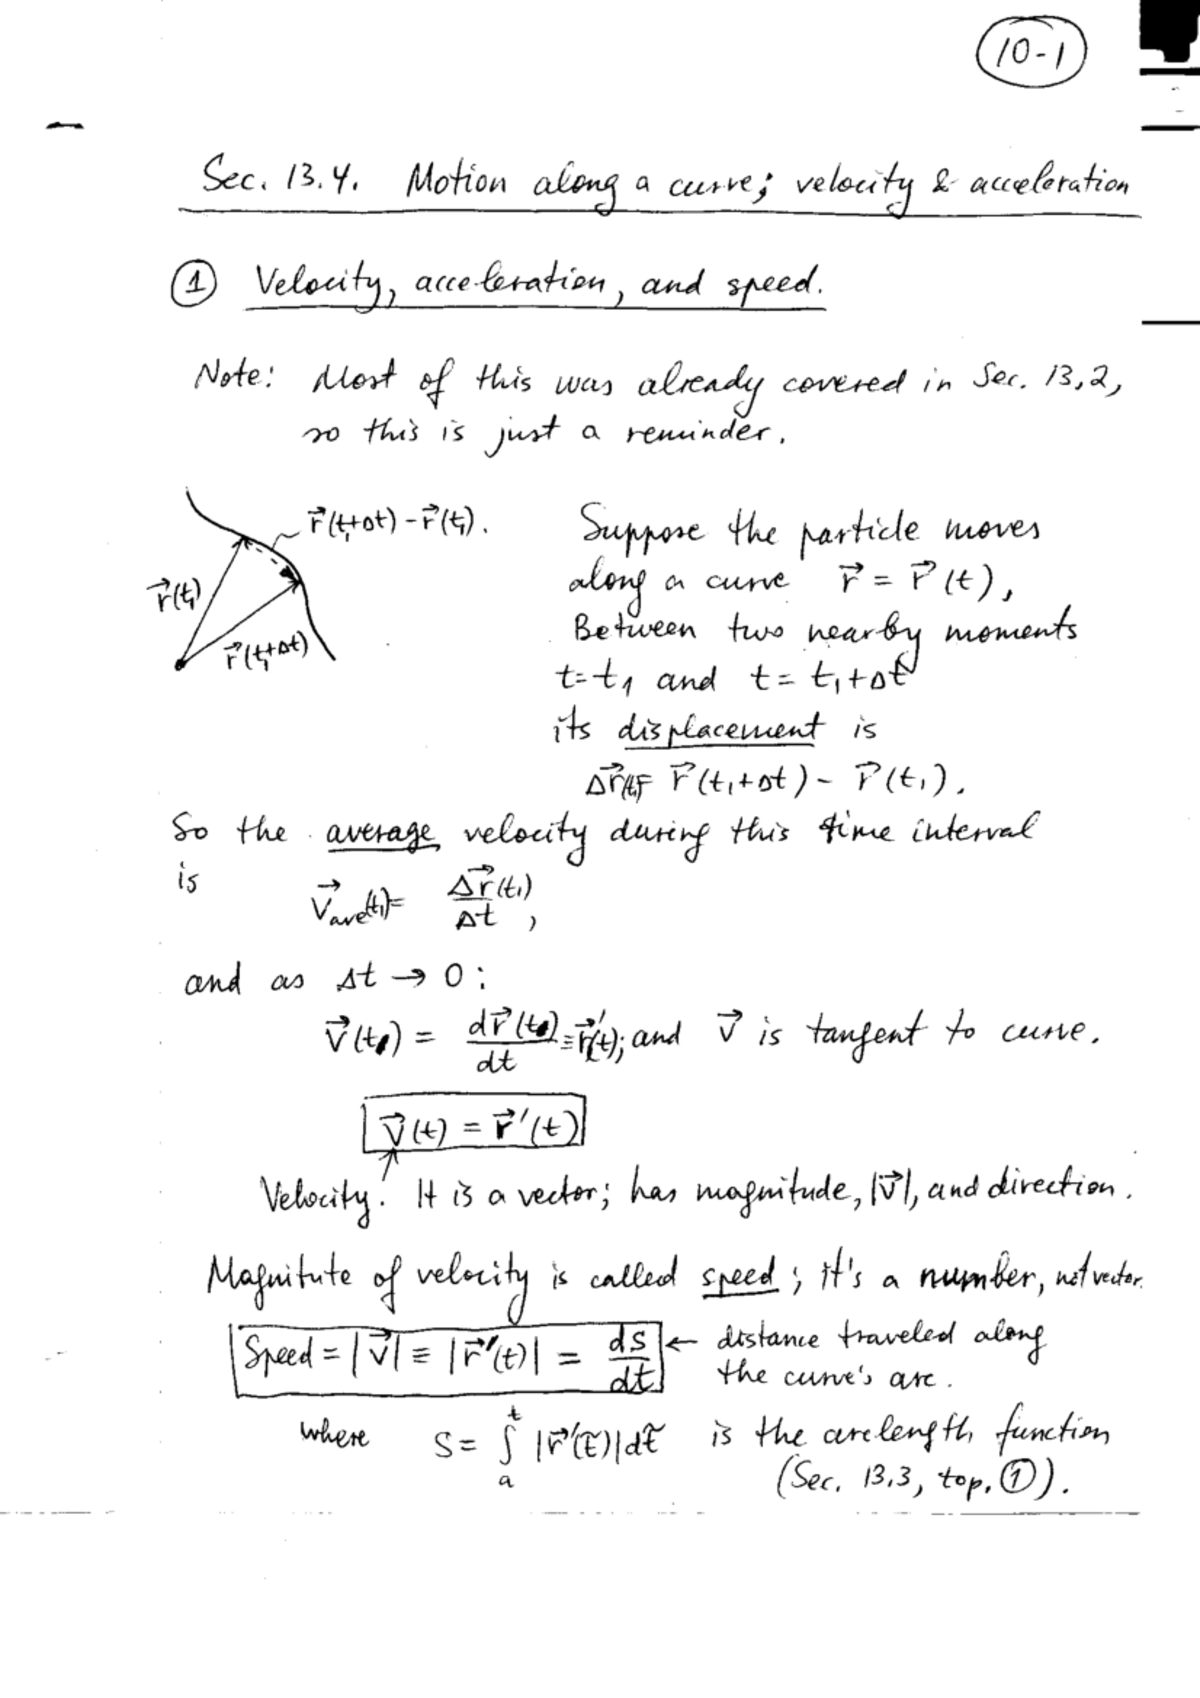 10-1
Sec. 13.4. Motion along a curve; velocity & acceleration
① Velocity, acceleration, and speed.
Note: Most of this was already covered in Sec. 13.2,
so this is just a reminder.
r⃗(t₁+Δt) - r⃗(t₁).
r⃗(t₁)
r⃗(t₁+Δt)
Suppose the particle moves
along a curve r⃗ = r⃗(t),
Between two nearby moments
t=t₁ and t = t₁+Δt
its displacement is
Δr⃗(t₁)= r⃗(t₁+Δt) - r⃗(t₁).
So the average velocity during this time interval
is v⃗ave(t₁)= Δr⃗(t₁)/Δt ,
and as Δt → 0:
v⃗(t) = dr⃗(t)/dt ≡ r⃗'(t); and v⃗ is tangent to curve.
v⃗(t) = r⃗'(t)
Velocity. It is a vector; has magnitude, |v⃗|, and direction.
Magnitute of velocity is called speed; it's a number, not vector.
Speed = |v⃗| ≡ |r⃗'(t)| = ds/dt ← distance traveled along
the curve's arc.
where S = ∫ₐᵗ |r⃗'(t̃)|dt̃ is the arclength function
(Sec. 13.3, top. ①).